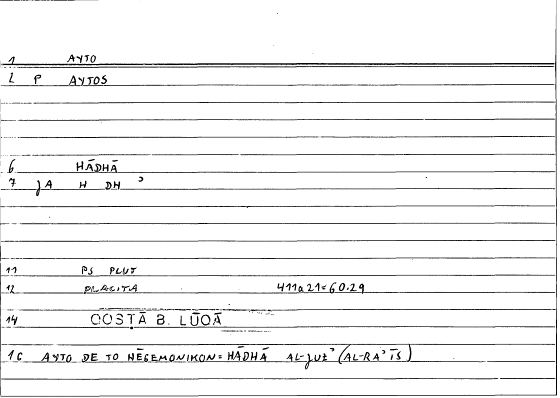 1 AYTO
2 P AYTOS
6 HĀDHĀ
7 JA H DH ʾ
11 PS PLUT
12 PLACITA 411a21=60.29
14 QOSṬĀ B. LŪQĀ
16 AYTO DE TO HĒGEMONIKON=HĀDHĀ AL-JUZʾ (AL-RAʾĪS)